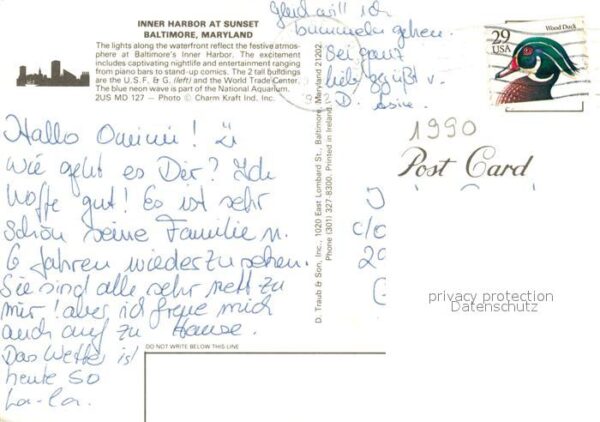 INNER HARBOR AT SUNSET
BALTIMORE, MARYLAND
The lights along the waterfront reflect the festive atmos-
phere at Baltimore's Inner Harbor. The excitement
includes captivating nightlife and entertainment ranging
from piano bars to stand-up comics. The 2 tall buildings
are the U.S.F. & G. (left) and the World Trade Center.
The blue neon wave is part of the National Aquarium.
2US MD 127 - Photo © Charm Kraft Ind. Inc.
Hallo Omimi!
Wie geht es Dir? Ich
hoffe gut! Es ist sehr
schön seine Familie n.
6 Jahren wiederzusehen.
Sie sind alle sehr nett zu
mir! aber ich freue mich
auch auf zu Hause.
Das Wetter ist
heute so
la-la.
Gleich will ich
bummeln gehen.
Sei ganz
lieb gegrüßt v.
D.
D. Traub & Son, Inc., 1020 East Lombard St., Baltimore, Maryland 21202
Phone (301) 327-8300. Printed in Ireland.
DO NOT WRITE BELOW THIS LINE
Wood Duck
29
USA
1990
Post Card
J
c/o
29
G
privacy protection
Datenschutz